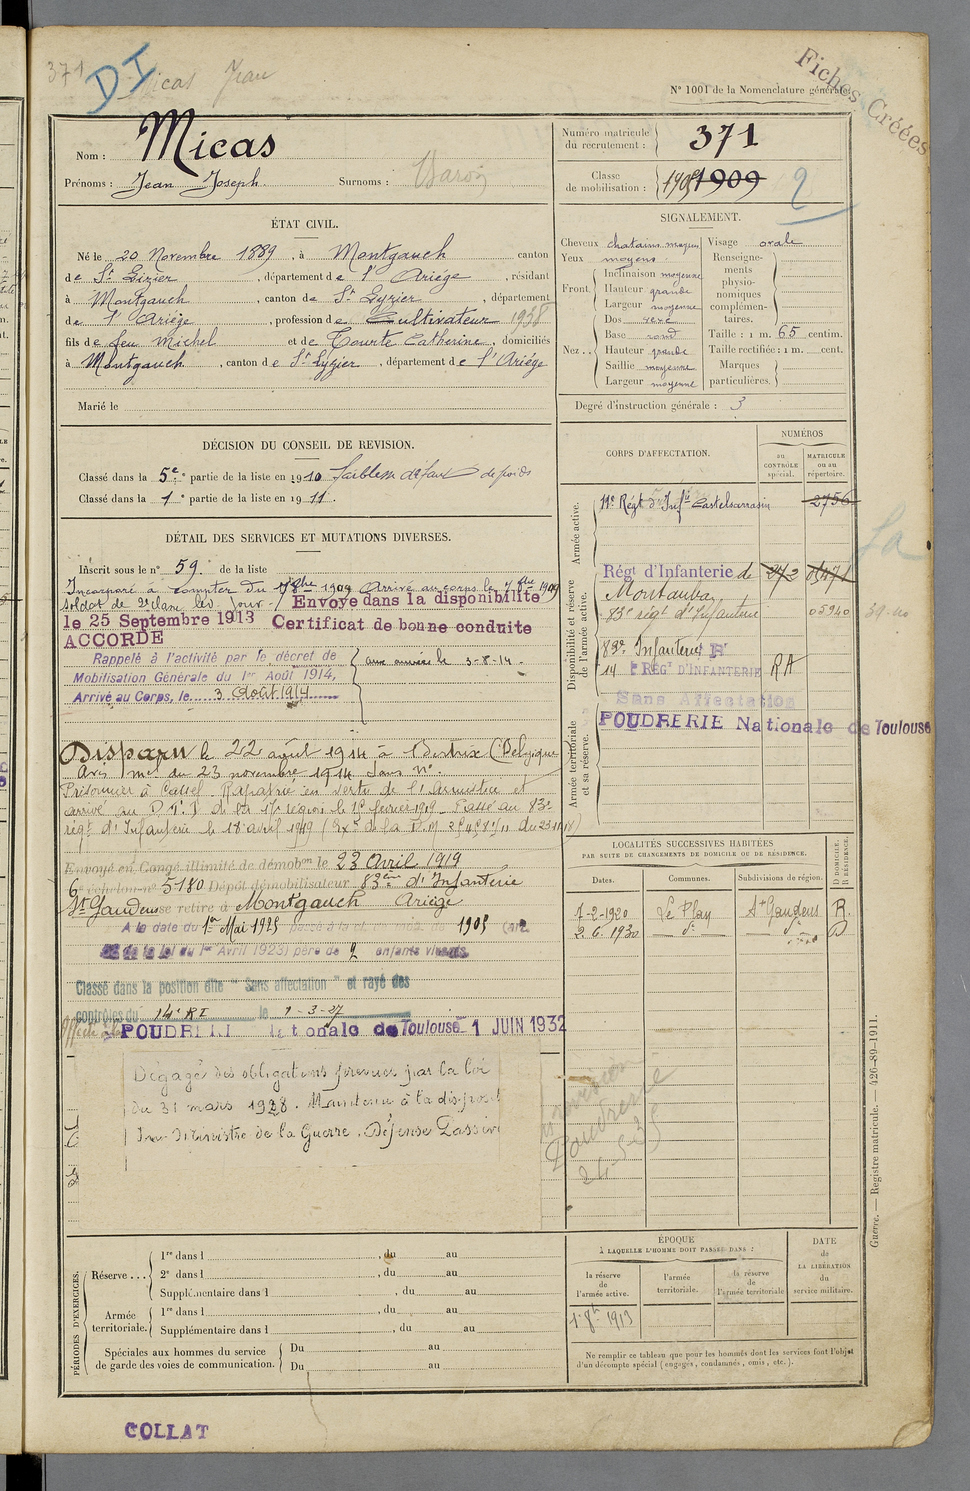 371
DI
Micas Jean
Fiches Créées
N° 1001 de la Nomenclature générale.
Nom : Micas
Prénoms : Jean Joseph. Surnoms :
Numéro matricule du recrutement : 371
Classe de mobilisation : 1905 1909
2
ÉTAT CIVIL.
Né le 20 Novembre 1889, à Montgauch canton
de St Lizier, département de l'Ariége, résidant
à Montgauch, canton de St Lyzier, département
de l'Ariége, profession de Cultivateur 1938
fils de feu Michel et de Tourte Catherine, domiciliés
à Montgauch, canton de St Lyzier, département de l'Ariége
Marié le
SIGNALEMENT.
Cheveux chatains moyen
Yeux moyens
Front. Inclinaison moyenne
Hauteur grande
Largeur moyenne
Nez .. Dos
Base rond
Hauteur grande
Saillie moyenne
Largeur moyenne
Visage ovale
Renseignements physionomiques complémentaires.
Taille : 1 m. 65 centim.
Taille rectifiée : 1 m. cent.
Marques particulières.
Degré d'instruction générale : 3
DÉCISION DU CONSEIL DE REVISION.
Classé dans la 5e partie de la liste en 1910 faiblesse défaut de poids
Classé dans la 1e partie de la liste en 1911.
DÉTAIL DES SERVICES ET MUTATIONS DIVERSES.
Inscrit sous le n° 59. de la liste
Incorporé à compter du 1909 Arrivé au corps le 1909
soldat de 2e classe led. jour. Envoyé dans la disponibilité
le 25 Septembre 1913 Certificat de bonne conduite
ACCORDÉ
Rappelé à l'activité par le décret de
Mobilisation Générale du 1er Août 1914,
Arrivé au Corps, le 3 Août 1914
aux armées le 3-8-14.
Disparu le 22 août 1914 à (Belgique
Avis mel du 23 novembre 1914 sans n°.
Prisonnier à Cassel. Rapatrié en vertu de l'Armistice et
arrivé au D. de la 17e région le 1919. Passé au 83e
régt d'Infanterie le 18 avril 1919
Envoyé en Congé illimité de démobon le 23 Avril 1919
6e échelon n° 5180 Dépôt démobilisateur 83ème d'Infanterie
St Gaudens se retire à Montgauch Ariége
A la date du 1er Mai 1925 passé à la classe de 1905
de la loi du 1er Avril 1923) père de 2 enfants vivants.
Classé dans la position dite "Sans affectation" et rayé des
contrôles du 14e RI le 1-3-27
Affecté à la POUDRERIE Nationale de Toulouse 1 JUIN 1932
Dégagé des obligations prévues par la loi
du 31 mars 1928. Maintenu à la disposit
du Ministre de la Guerre. Défense Passive
CORPS D'AFFECTATION.
NUMÉROS
au CONTRÔLE spécial.
MATRICULE ou au répertoire.
Armée active.
11e Régt d'Infie Castelsarrasin 2756
Disponibilité et réserve de l'armée active.
Régt d'Infanterie de Montauban 05471
83e régt d'Infanterie 05940
83e Infanterie
14 RÉGt D'INFANTERIE RA
Sans Affectation
Armée territoriale et sa réserve.
POUDRERIE Nationale de Toulouse
LOCALITÉS SUCCESSIVES HABITÉES
PAR SUITE DE CHANGEMENTS DE DOMICILE OU DE RÉSIDENCE.
Dates. Communes. Subdivisions de région. D DOMICILE. R RÉSIDENCE.
7-2-1920 Le Plan St Gaudens R.
2.6.1930 do do D
Poudrerie
ÉPOQUE
À LAQUELLE L'HOMME DOIT PASSER DANS :
la réserve de l'armée active.
l'armée territoriale.
la réserve de l'armée territoriale
DATE de LA LIBÉRATION du service militaire.
1913
Ne remplir ce tableau que pour les hommes dont les services font l'objet
d'un décompte spécial (engagés, condamnés, omis, etc.).
PÉRIODES D'EXERCICES.
Réserve ... 1re dans l , du au
2e dans l , du au
Supplémentaire dans l , du au
Armée territoriale. 1re dans l , du au
Supplémentaire dans l , du au
Spéciales aux hommes du service de garde des voies de communication. Du au
Du au
Guerre. — Registre matricule. — 426-89-1911.
COLLAT